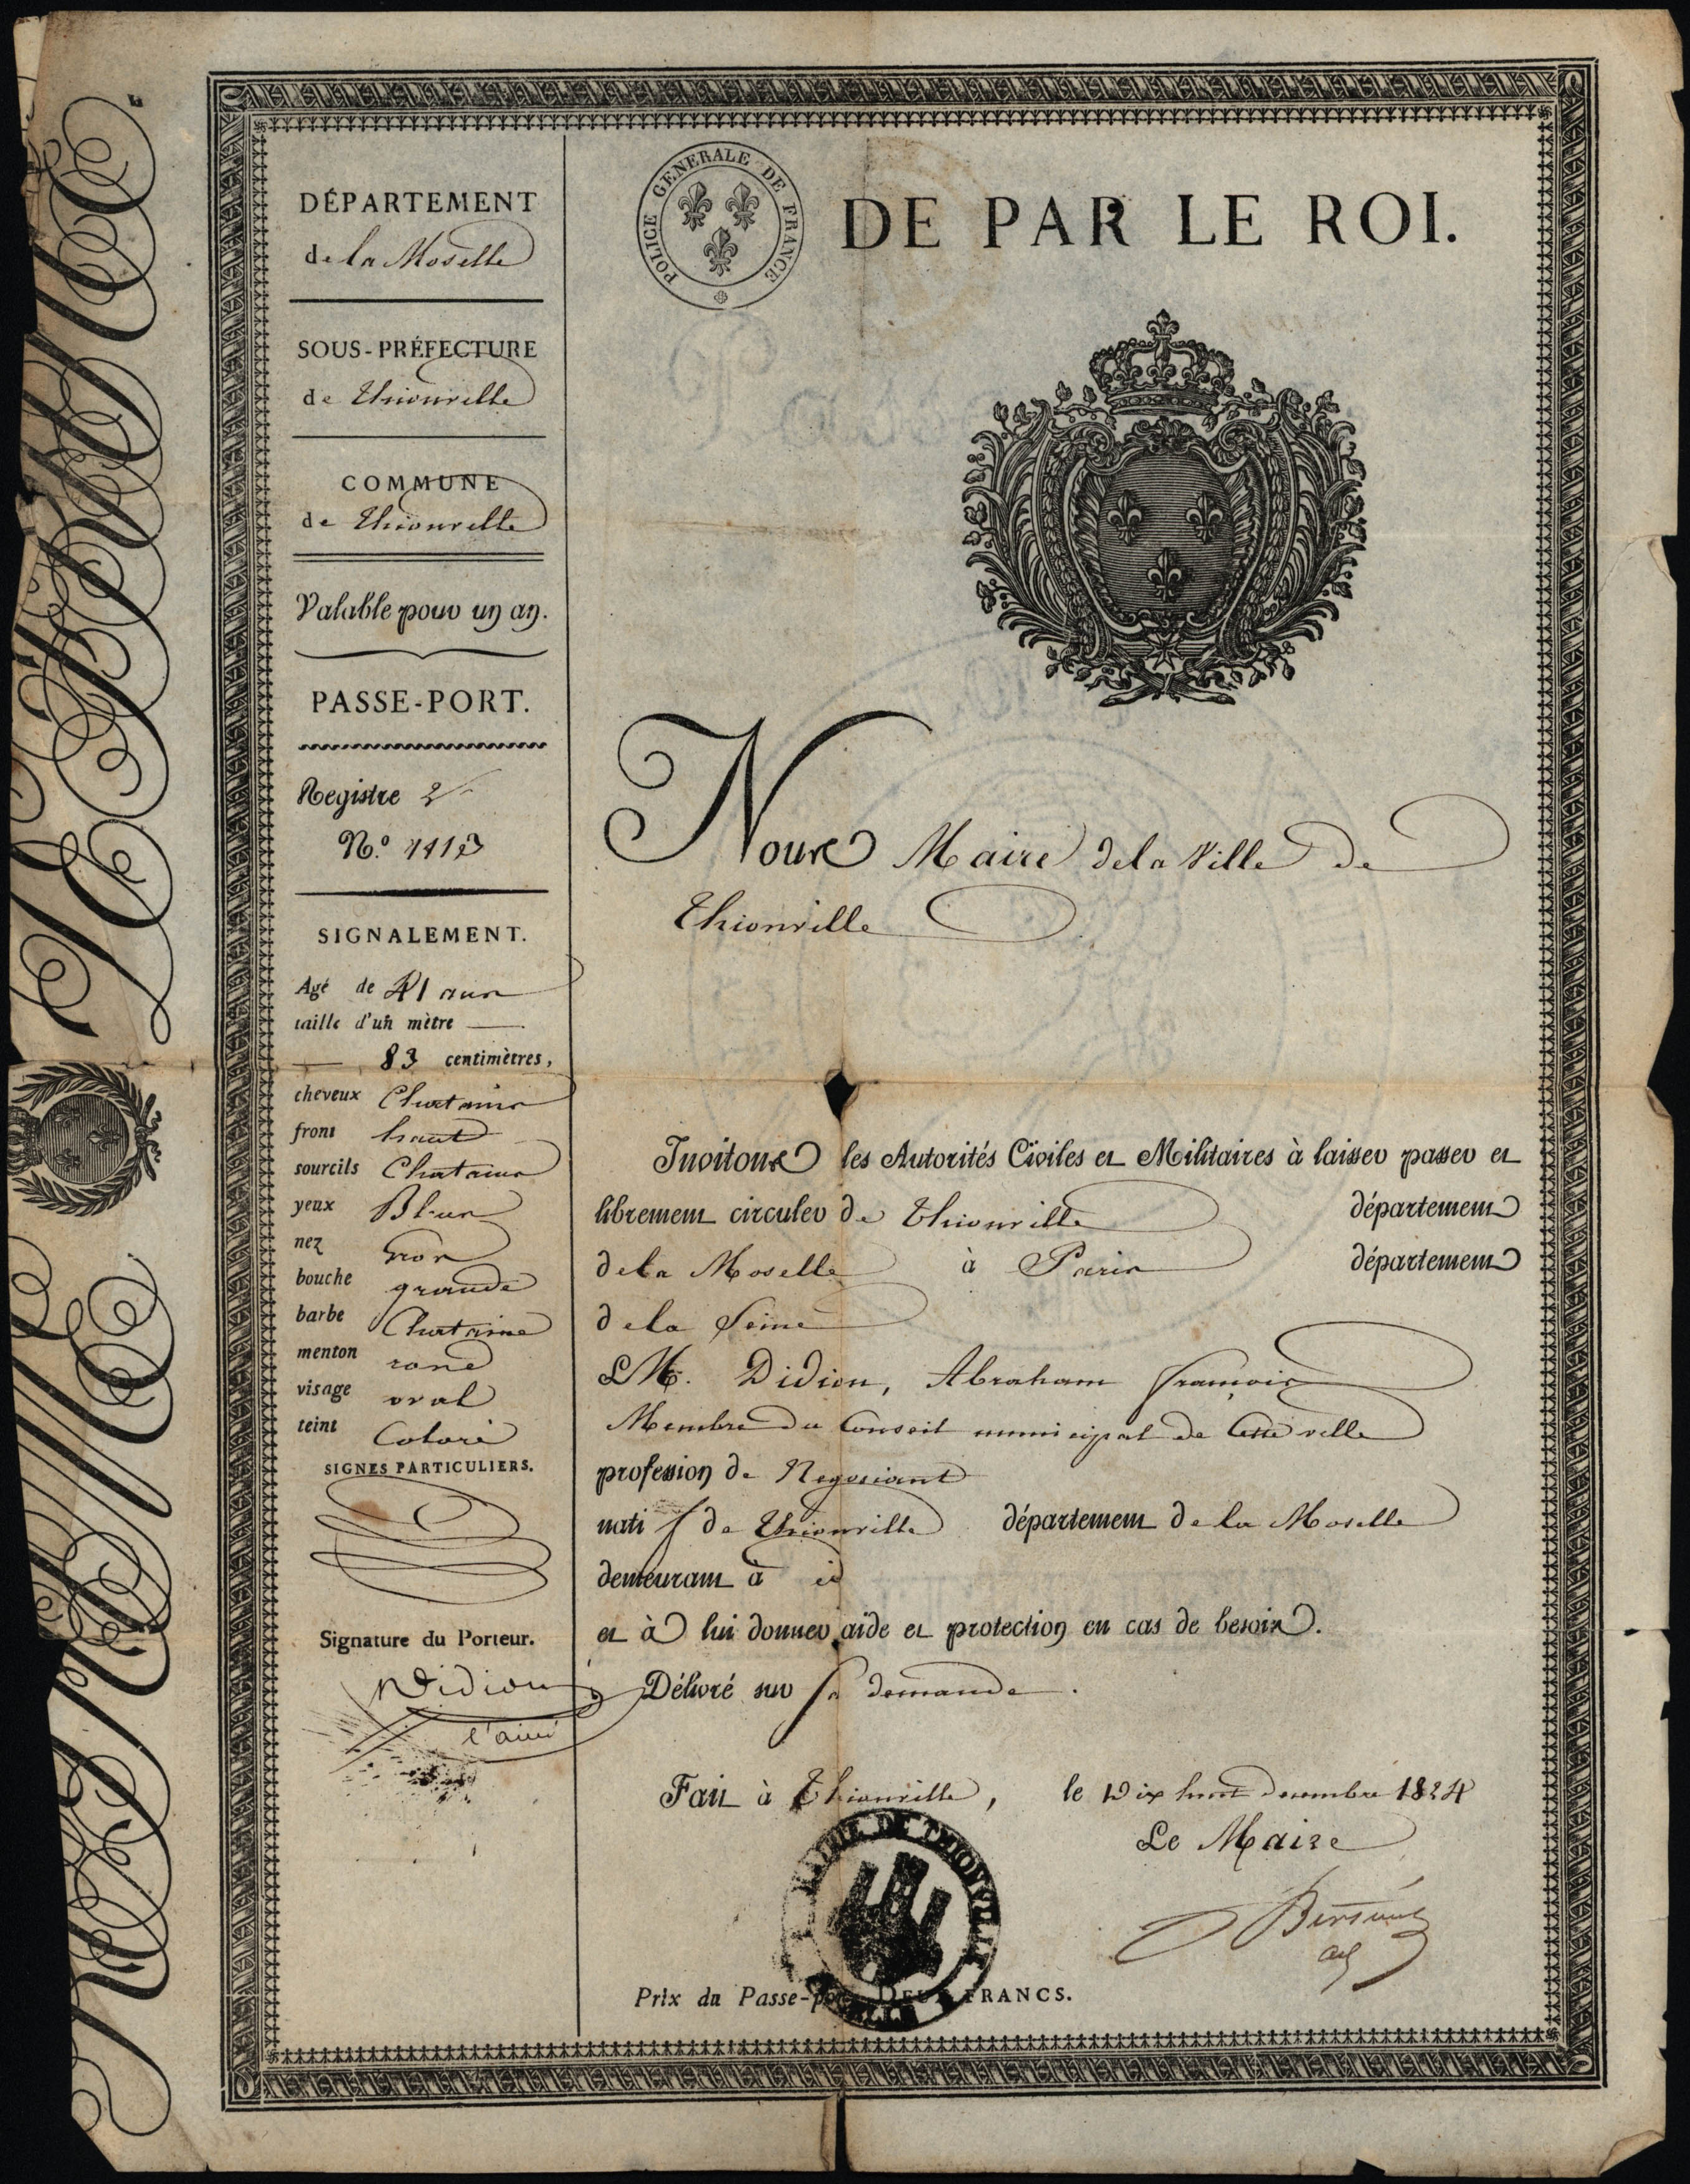 DÉPARTEMENT
de la Moselle
SOUS-PRÉFECTURE
de Thionville
COMMUNE
de Thionville
Valable pour un an.
PASSE-PORT.
Registre 2
N.º 1113
SIGNALEMENT.
Agé de 41 ans
taille d'un mètre
83 centimètres,
cheveux Chatains
front haut
sourcils Chatains
yeux Bleus
nez Gros
bouche grande
barbe Chataine
menton rond
visage oval
teint Coloré
SIGNES PARTICULIERS.
Signature du Porteur.
Didion
l'ainé
POLICE GENERALE DE FRANCE
DE PAR LE ROI.
Nous Maire de la Ville de
Thionville
Invitons les Autorités Civiles et Militaires à laisser passer et
librement circuler de Thionville département
de la Moselle à Paris département
de la Seine
L M. Didion, Abraham François
Membre du Conseil municipal de Cette ville
profession de Negociant
natif de Thionville département de la Moselle
demeurant à id
et à lui donner aide et protection en cas de besoin.
Délivré sur sa demande.
Fait à Thionville, le Dix huit decembre 1824
Le Maire
MAIRIE DE THIONVILLE
Prix du Passe-port DEUX FRANCS.